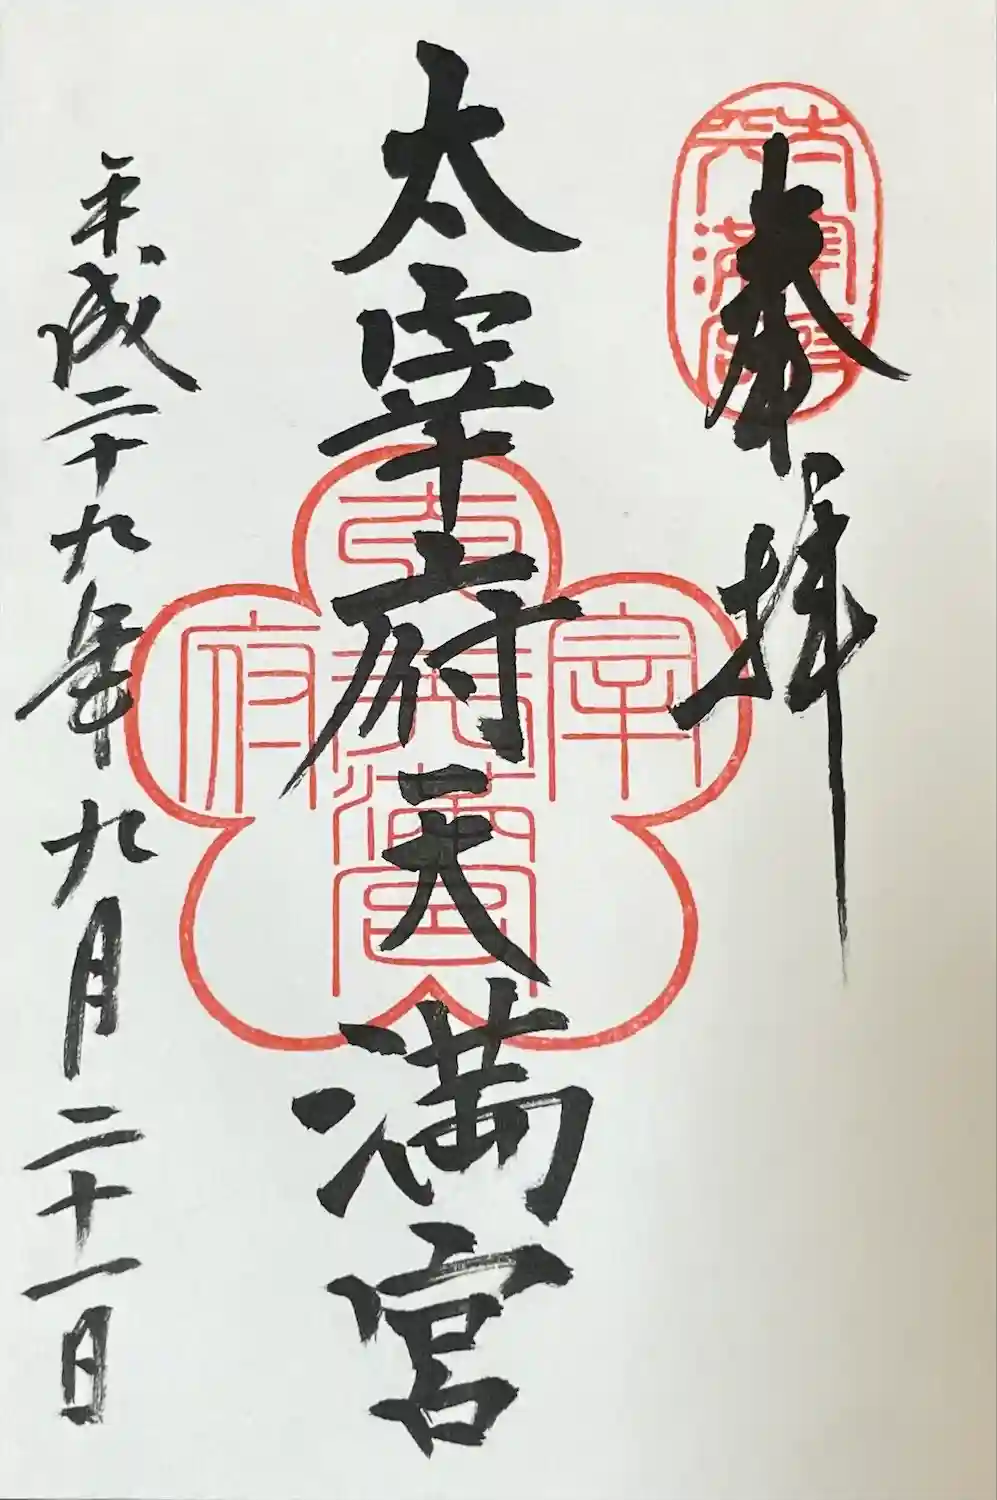 奉拝
太宰府天満宮
太宰府天満宮
太宰府天満宮
平成二十九年九月二十一日